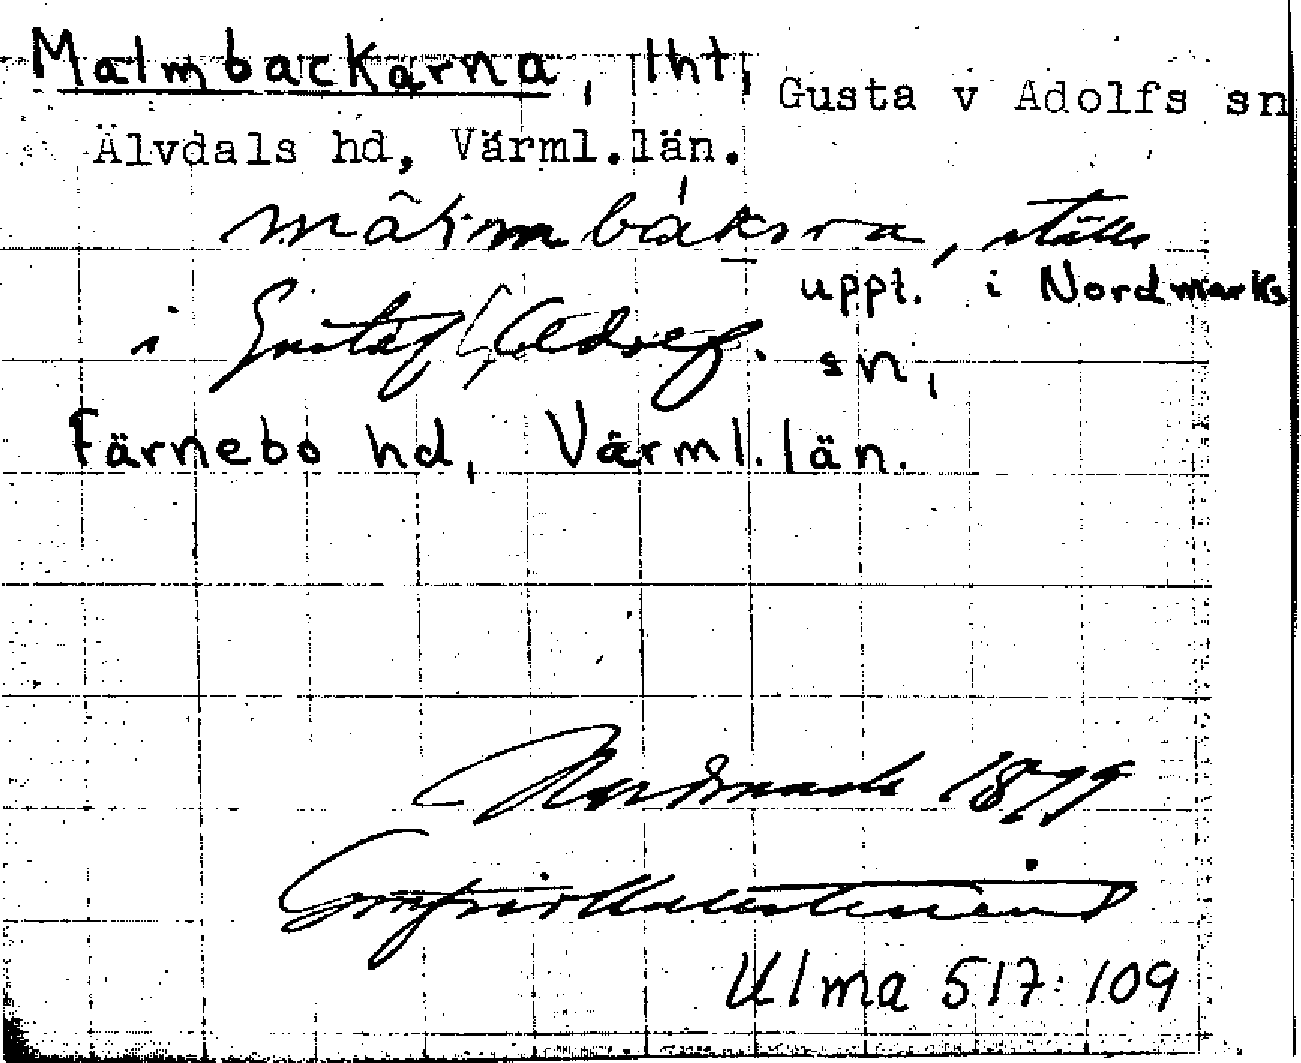 Malmbackarna, lht, Gusta v Adolfs sn
Älvdals hd, Värml.län.
ställe
i Gustaf Adolf.
uppt. i Nordmarks
sn,
Färnebo hd, Värml.län.
Nordmark 1879
Ulma 517:109